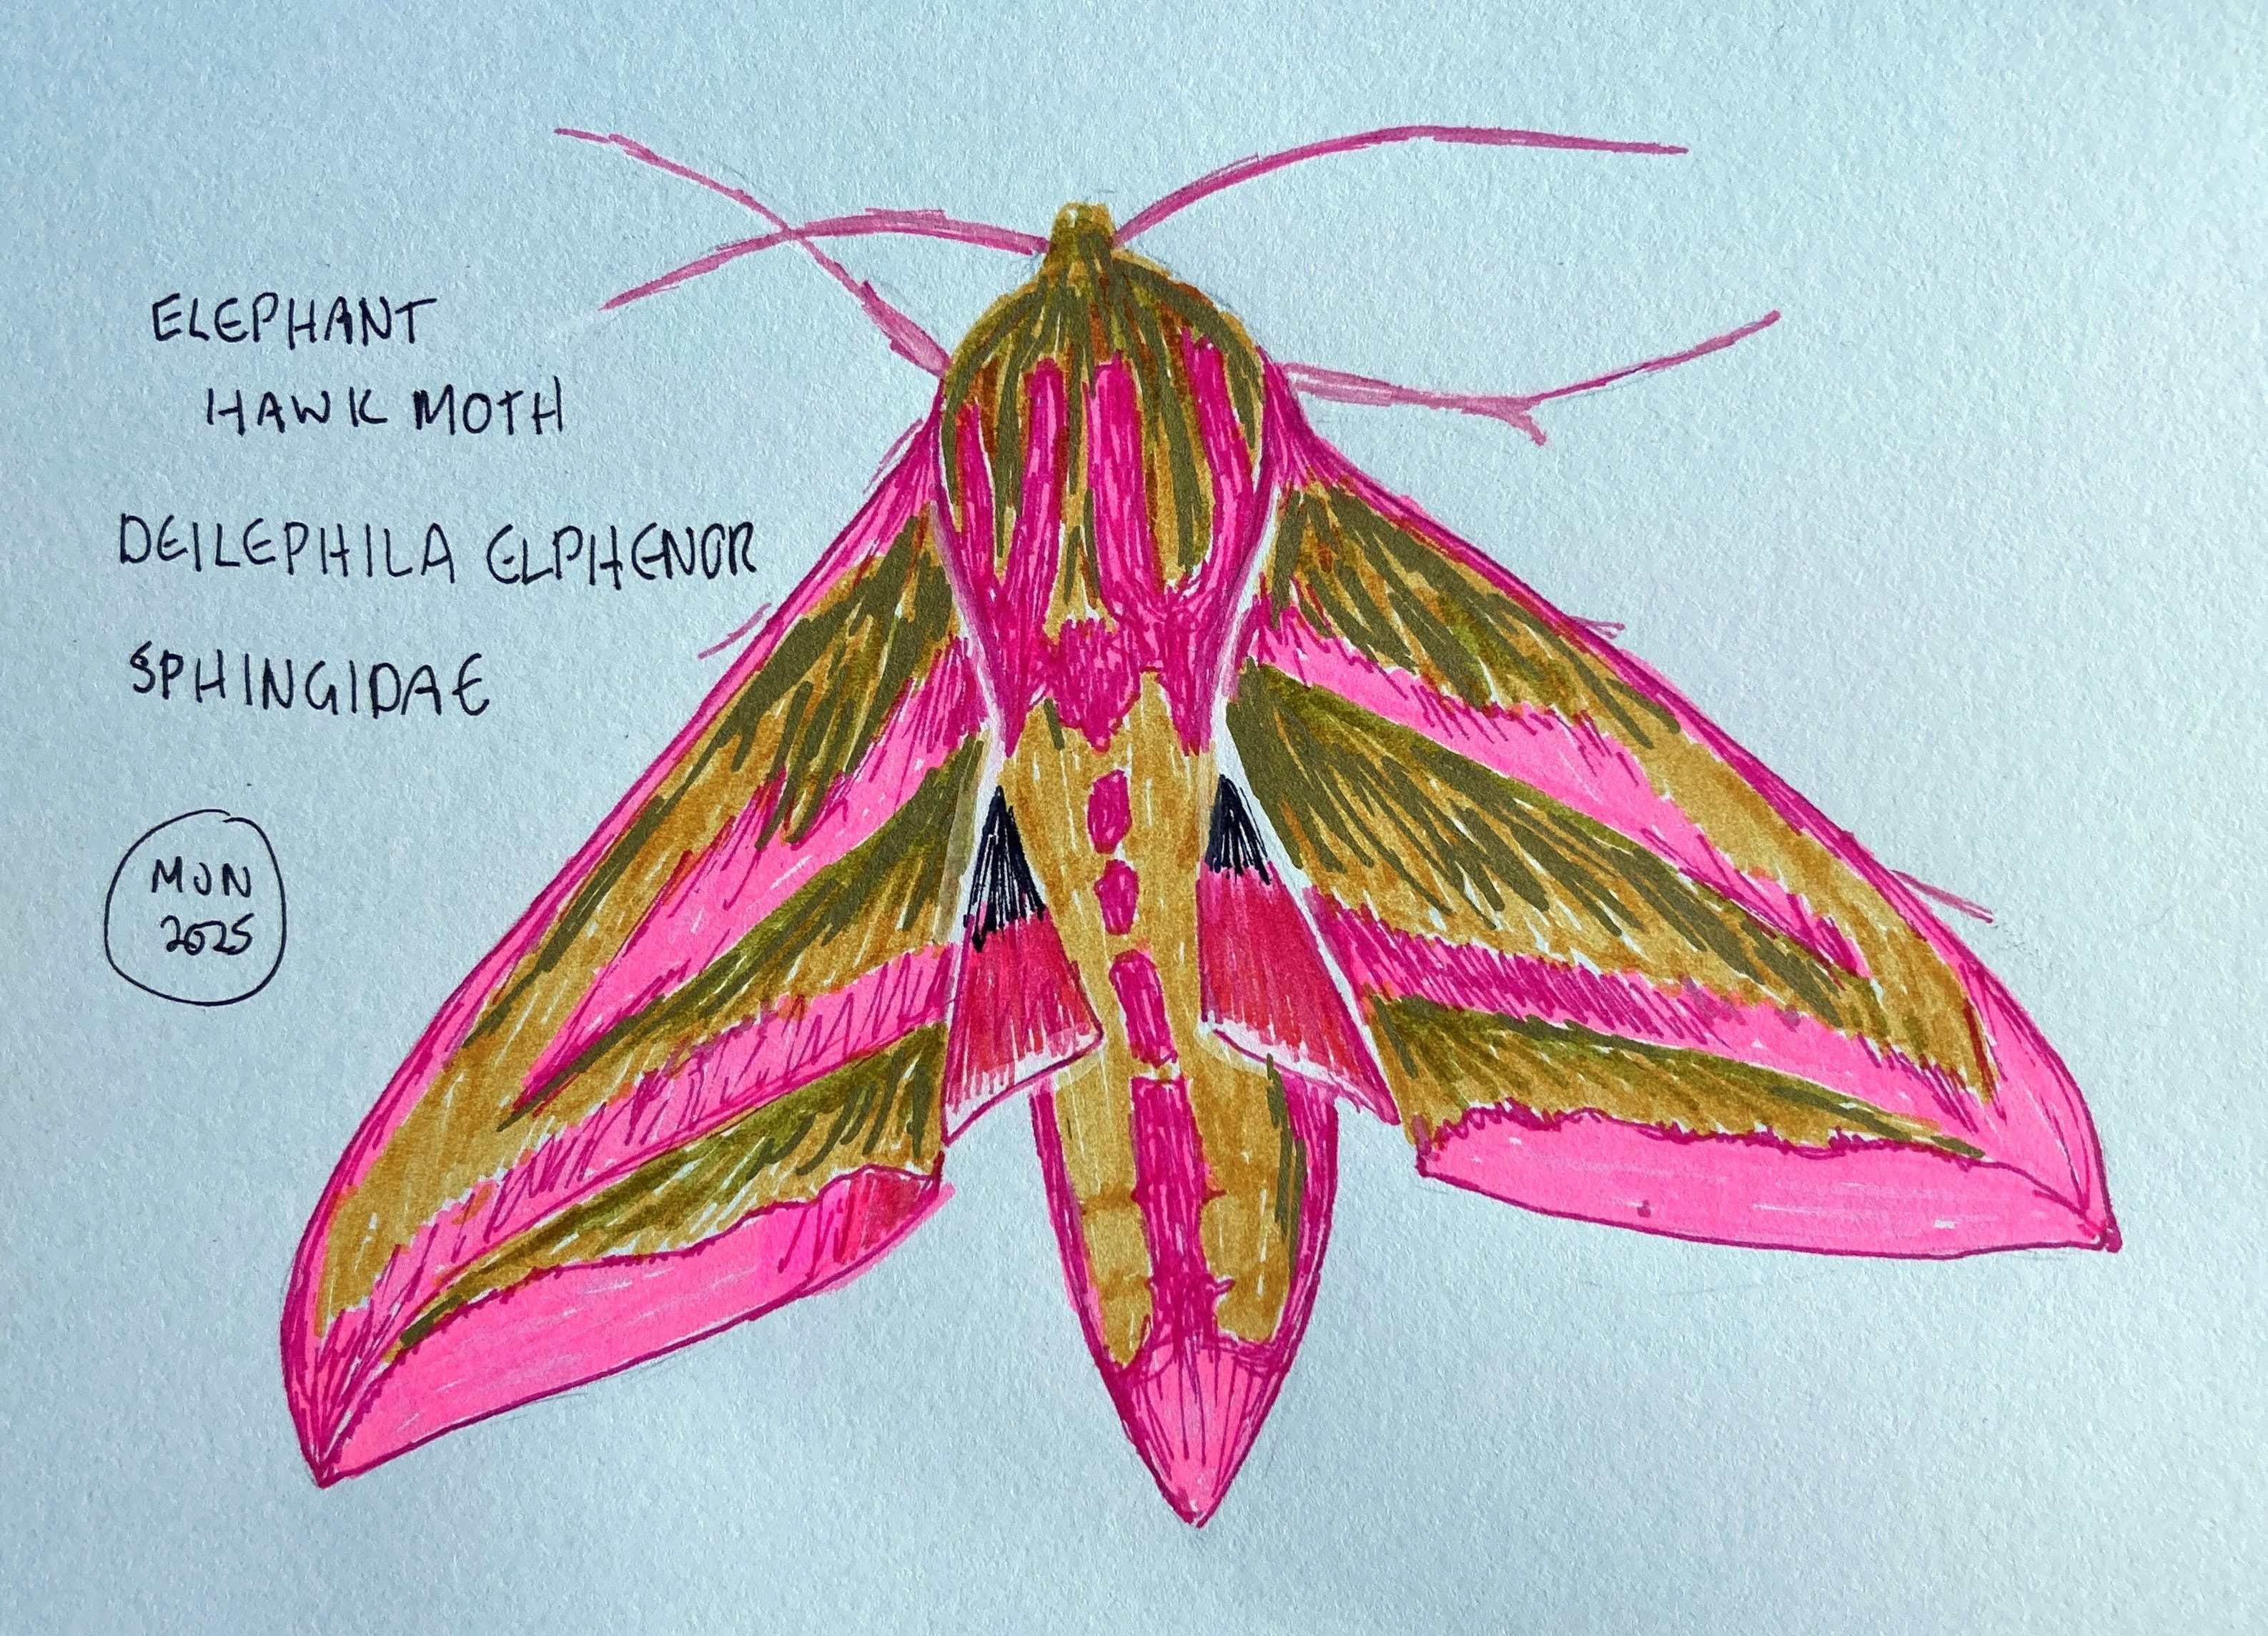 ELEPHANT
HAWK MOTH
DEILEPHILA ELPHENOR
SPHINGIDAE
MUN
2025